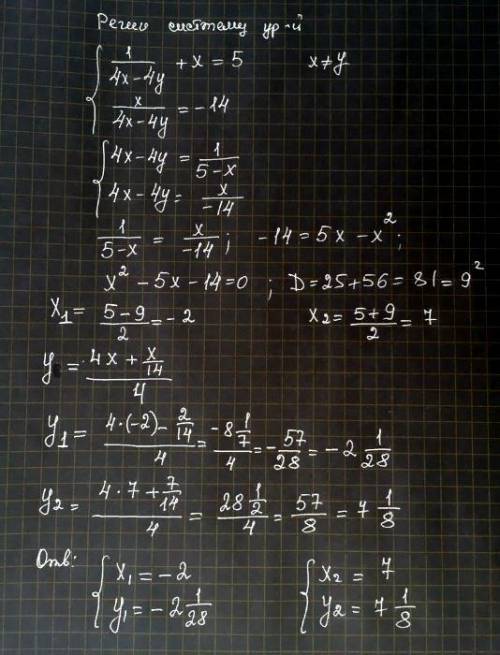 Решю систему ур-й
{ 1/(4x-4y) + x = 5     x ≠ y
x/(4x-4y) = -14
{ 4x-4y = 1/(5-x)
4x-4y = x/-14
1/(5-x) = x/-14 ;   -14 = 5x - x² ;
x² - 5x - 14 = 0 ; D = 25+56 = 81 = 9²
x₁ = (5-9)/2 = -2     x₂ = (5+9)/2 = 7
y = (4x + x/14)/4
y₁ = (4·(-2) - 2/14)/4 = (-8 1/7)/4 = -57/28 = -2 1/28
y₂ = (4·7 + 7/14)/4 = (28 1/2)/4 = 57/8 = 7 1/8
Отв: { x₁ = -2     { x₂ = 7
y₁ = -2 1/28     y₂ = 7 1/8